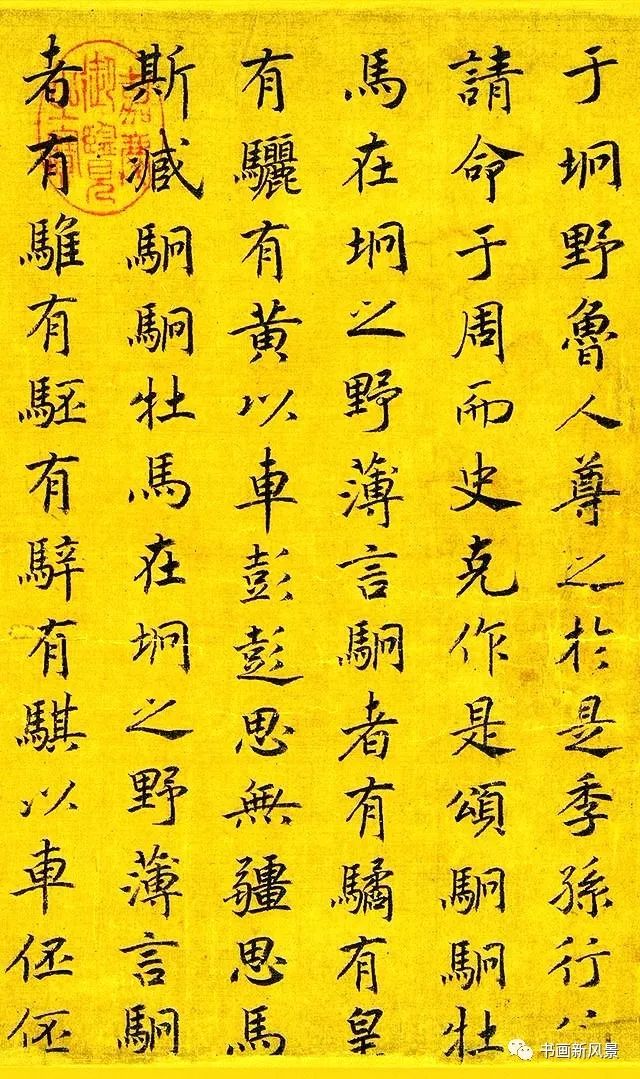 于坰野魯人尊之於是季孫行
請命于周而史克作是頌駉駉牡
馬在坰之野薄言駉者有驈有皇
有驪有黄以車彭彭思無疆思馬
斯臧駉駉牡馬在坰之野薄言駉
者有騅有駓有騂有騏以車伾伾
嘉慶御覽之寶
书画新风景